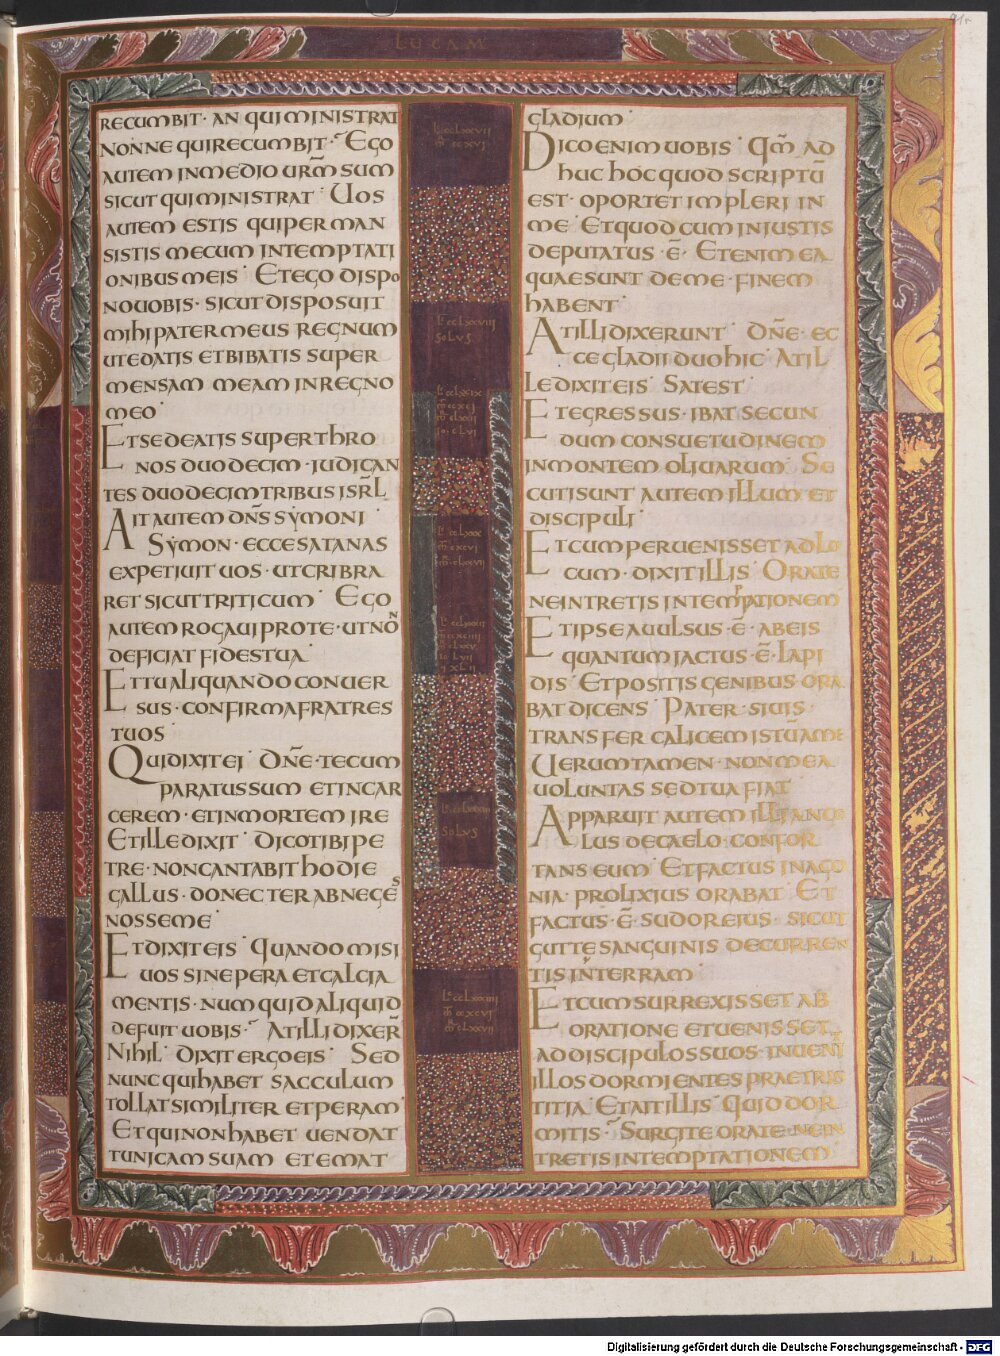 LUCAM
91r
RECUMBIT· AN QUI MINISTRAT
NONNE QUI RECUMBIT· EGO
AUTEM IN MEDIO URM̄ SUM
SICUT QUI MINISTRAT· UOS
AUTEM ESTIS QUI PERMAN
SISTIS MECUM IN TEMPTATI
ONIBUS MEIS· ET EGO DISPO
NO UOBIS· SICUT DISPOSUIT
MIHI PATER MEUS REGNUM
UT EDATIS ET BIBATIS SUPER
MENSAM MEAM IN REGNO
MEO·
ET SEDEATIS SUPER THRO
NOS DUODECIM· IUDICAN
TES DUODECIM TRIBUS ISRL̄
AIT AUTEM DN̄S SYMONI·
SYMON· ECCE SATANAS
EXPETIUIT UOS· UT CRIBRA
RET SICUT TRITICUM· EGO
AUTEM ROGAUI PRO TE· UT NŌN
DEFICIAT FIDES TUA·
ET TU ALIQUANDO CONUER
SUS· CONFIRMA FRATRES
TUOS·
QUI DIXIT EI· DN̄E· TECUM
PARATUS SUM ET IN CAR
CEREM· ET IN MORTEM IRE
ET ILLE DIXIT· DICO TIBI PE
TRE· NON CANTABIT HODIE
GALLUS· DONEC TER ABNEGES
NOSSE ME·
ET DIXIT EIS· QUANDO MISI
UOS SINE PERA ET CALCIA
MENTIS· NUMQUID ALIQUID
DEFUIT UOBIS· AT ILLI DIXER̄
NIHIL· DIXIT ERGO EIS· SED
NUNC QUI HABET SACCULUM
TOLLAT SIMILITER ET PERAM·
ET QUI NON HABET UENDAT
TUNICAM SUAM ET EMAT
L̄ CCLXXVII
SOLUS
SOLUS
GLADIUM·
DICO ENIM UOBIS· QM̄ AD
HUC HOC QUOD SCRIPTŪ
EST· OPORTET IMPLERI IN
ME· ET QUOD CUM INIUSTIS
DEPUTATUS Ē· ETENIM EA
QUAE SUNT DE ME· FINEM
HABENT·
AT ILLI DIXERUNT· DN̄E· EC
CE GLADII DUO HIC· AT IL
LE DIXIT EIS· SAT EST·
ET EGRESSUS· IBAT SECUN
DUM CONSUETUDINEM
IN MONTEM OLIUARUM· SE
CUTI SUNT AUTEM ILLUM ET
DISCIPULI·
ET CUM PERUENISSET AD LO
CUM· DIXIT ILLIS· ORATE
NE INTRETIS IN TEMPTATIONEM
ET IPSE AUULSUS· Ē· AB EIS
QUANTUM IACTUS· Ē· LAPI
DIS· ET POSITIS GENIBUS ORA
BAT DICENS· PATER· SI UIS·
TRANSFER CALICEM ISTŪ A ME
UERUMTAMEN· NON MEA
UOLUNTAS SED TUA FIAT
APPARUIT AUTEM ILLI ANGE
LUS DE CAELO· CONFOR
TANS EUM· ET FACTUS IN AGO
NIA· PROLIXIUS ORABAT· ET
FACTUS· Ē· SUDOR EIUS· SICUT
GUTTE SANGUINIS DECURREN
TIS IN TERRAM·
ET CUM SURREXISSET AB
ORATIONE ET UENISSET
AD DISCIPULOS SUOS· INUENIT
ILLOS DORMIENTES PRAE TRIS
TITIA· ET AIT ILLIS· QUID DOR
MITIS· SURGITE ORATE· NE IN
TRETIS IN TEMPTATIONEM·
Digitalisierung gefördert durch die Deutsche Forschungsgemeinschaft - DFG